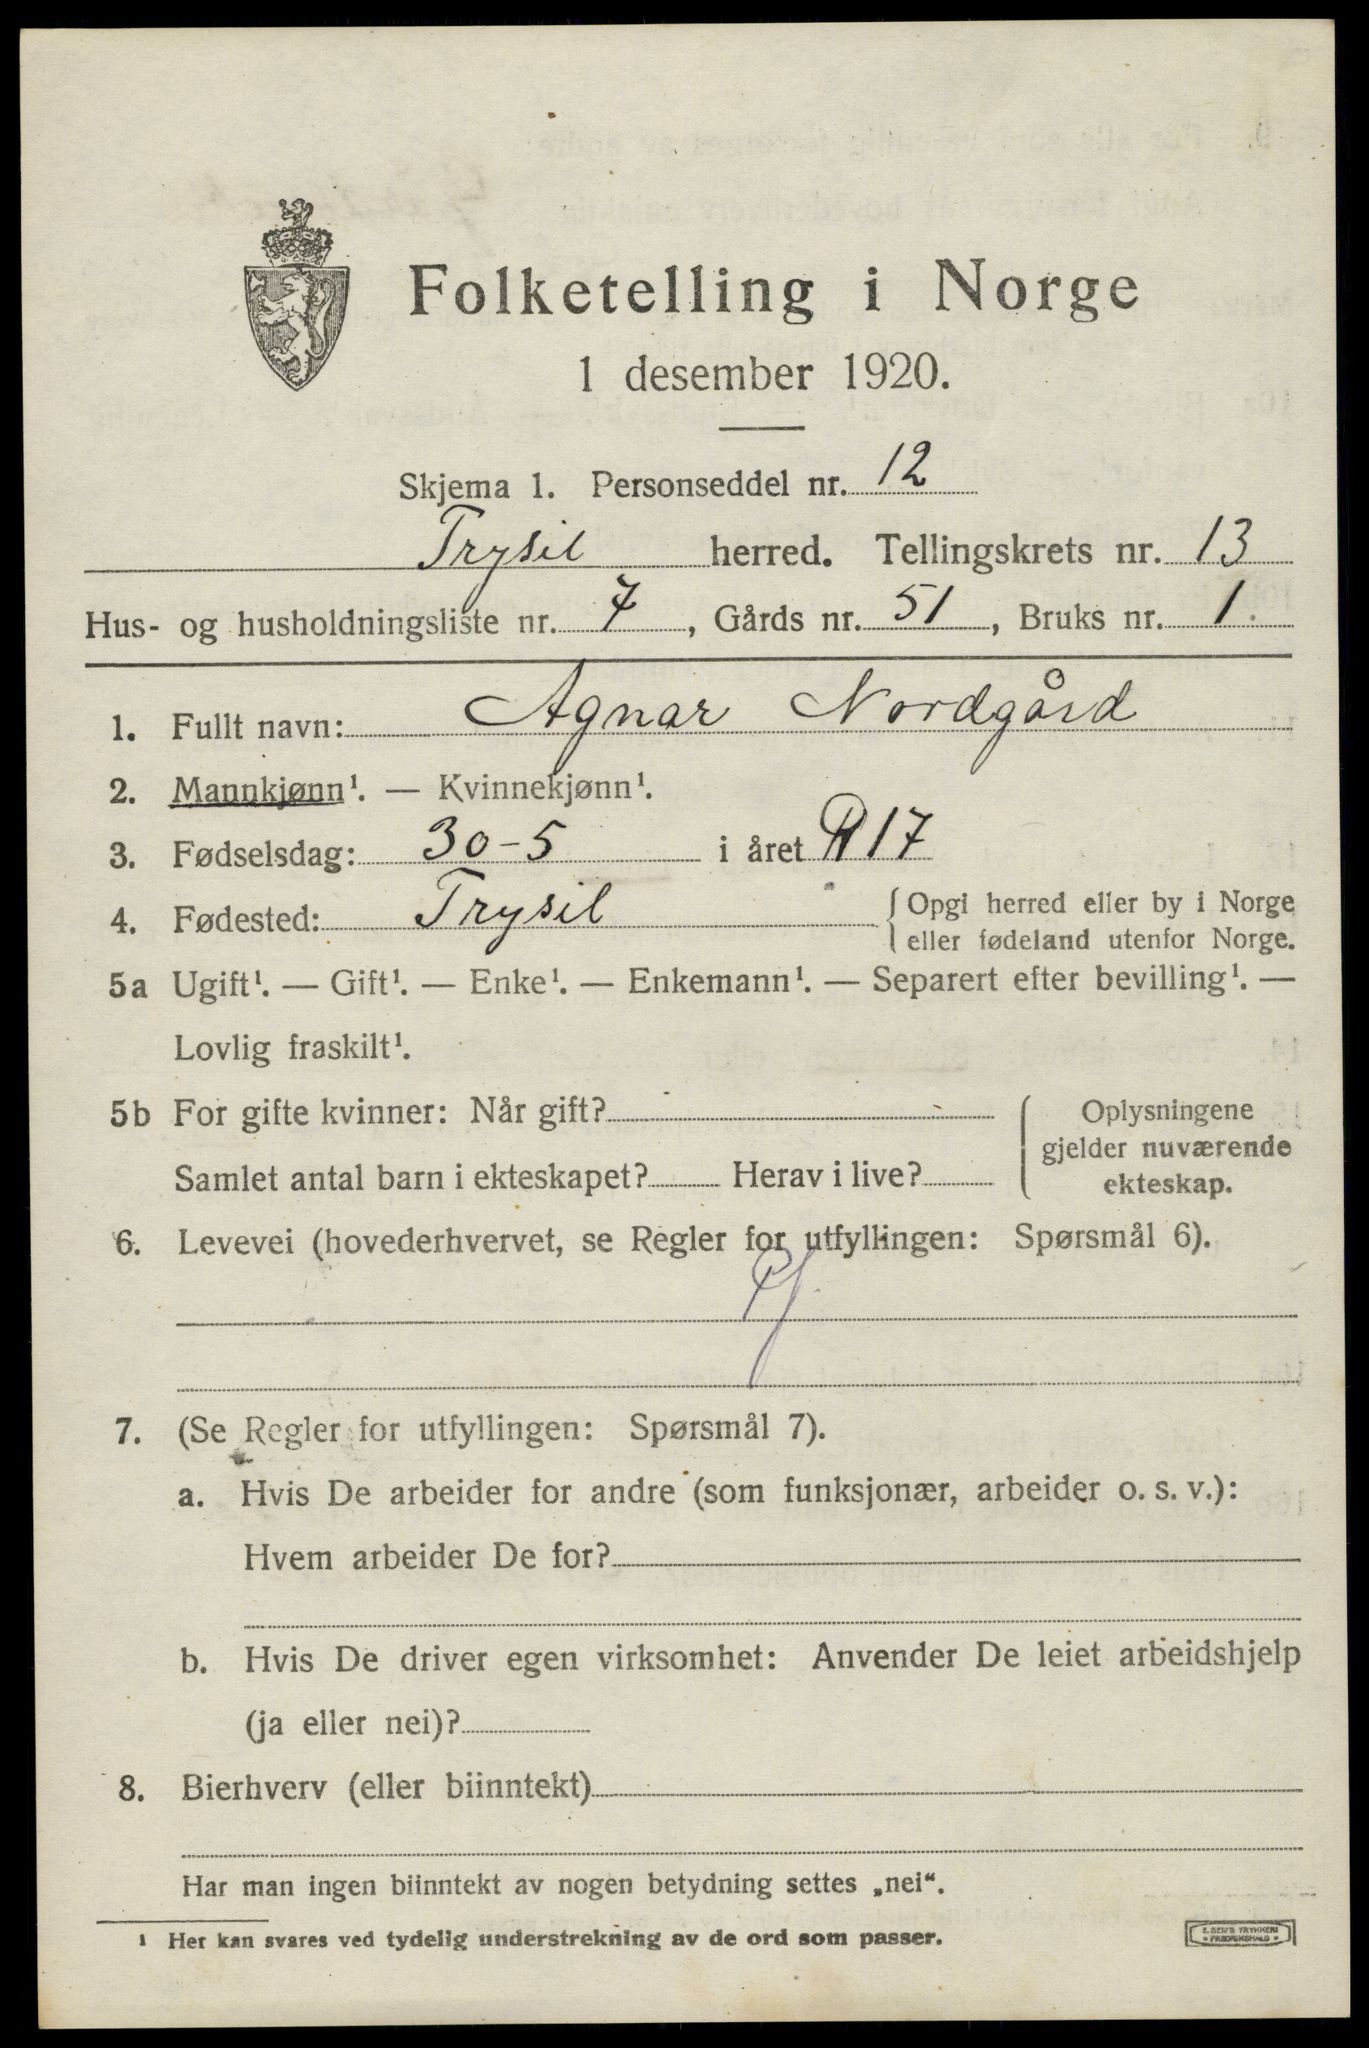 Folketelling i Norge
1 desember 1920.
Skjema 1. Personseddel nr. 12
Trysil herred. Tellingskrets nr. 13
Hus- og husholdningsliste nr. 7, Gårds nr. 51, Bruks nr. 1.
1. Fullt navn: Agnar Nordgård
2. Mannkjønn¹. — Kvinnekjønn¹.
3. Fødselsdag: 30-5 i året 17
4. Fødested: Trysil { Opgi herred eller by i Norge
eller fødeland utenfor Norge.
5a Ugift¹. — Gift¹. — Enke¹. — Enkemann¹. — Separert efter bevilling¹. —
Lovlig fraskilt¹.
5b For gifte kvinner: Når gift? { Oplysningene
gjelder nuværende
Samlet antal barn i ekteskapet? Herav i live? ekteskap.
6. Levevei (hovederhvervet, se Regler for utfyllingen: Spørsmål 6).
7. (Se Regler for utfyllingen: Spørsmål 7).
a. Hvis De arbeider for andre (som funksjonær, arbeider o. s. v.):
Hvem arbeider De for?
b. Hvis De driver egen virksomhet: Anvender De leiet arbeidshjelp
(ja eller nei)?
8. Bierhverv (eller biinntekt)
Har man ingen biinntekt av nogen betydning settes „nei“.
¹ Her kan svares ved tydelig understrekning av de ord som passer.
E. SEM'S TRYKKERI
* FREDRIKSHALD *